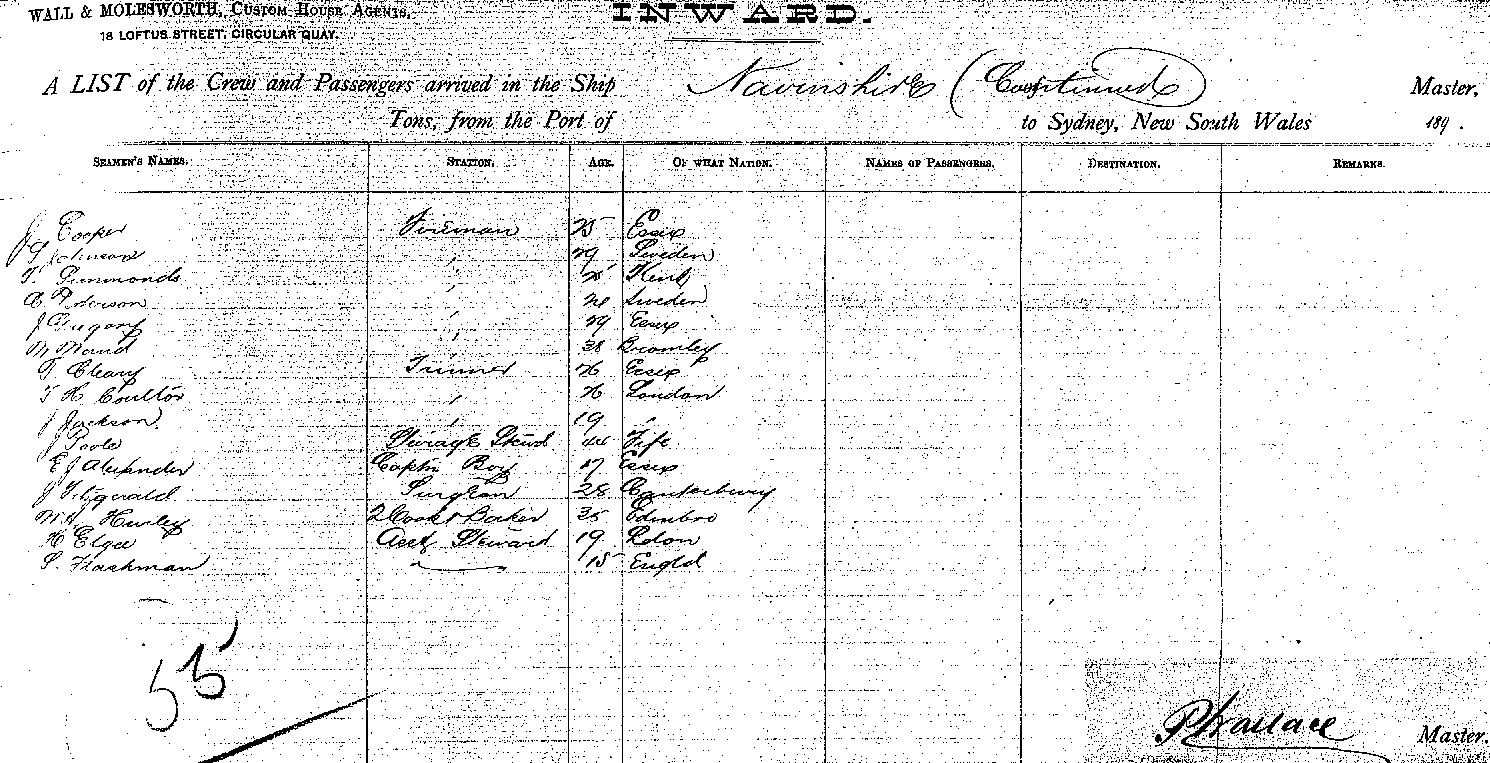 WALL & MOLESWORTH, CUSTOM HOUSE AGENTS,
18 LOFTUS STREET, CIRCULAR QUAY.
INWARD.
A LIST of the Crew and Passengers arrived in the Ship Navinshire (Continued) Master,
Tons, from the Port of to Sydney, New South Wales 189 .
SEAMEN'S NAMES. STATION. AGE. OF WHAT NATION. NAMES OF PASSENGERS. DESTINATION. REMARKS.
J Cooper Fireman 25 Essex
Johnson " 29 Sweden
T. Simmonds " Kent
" Sweden
J Gregory " 29 Essex
" 38 Bromley
T Cleary Trimmer 26 Essex
T H Coultor " 26 London
J Jackson " 19 "
J Poole Stewd 44 Fife
E J Alexander Captn Boy 17 Essex
J Fitzgerald Surgeon 28 Canterbury
Hurley 2 Cook & Baker 35 Edinbro
H Elgee Asst Steward 19 Ldon
S. Flashman 15 Engld
55
P Wallace Master.